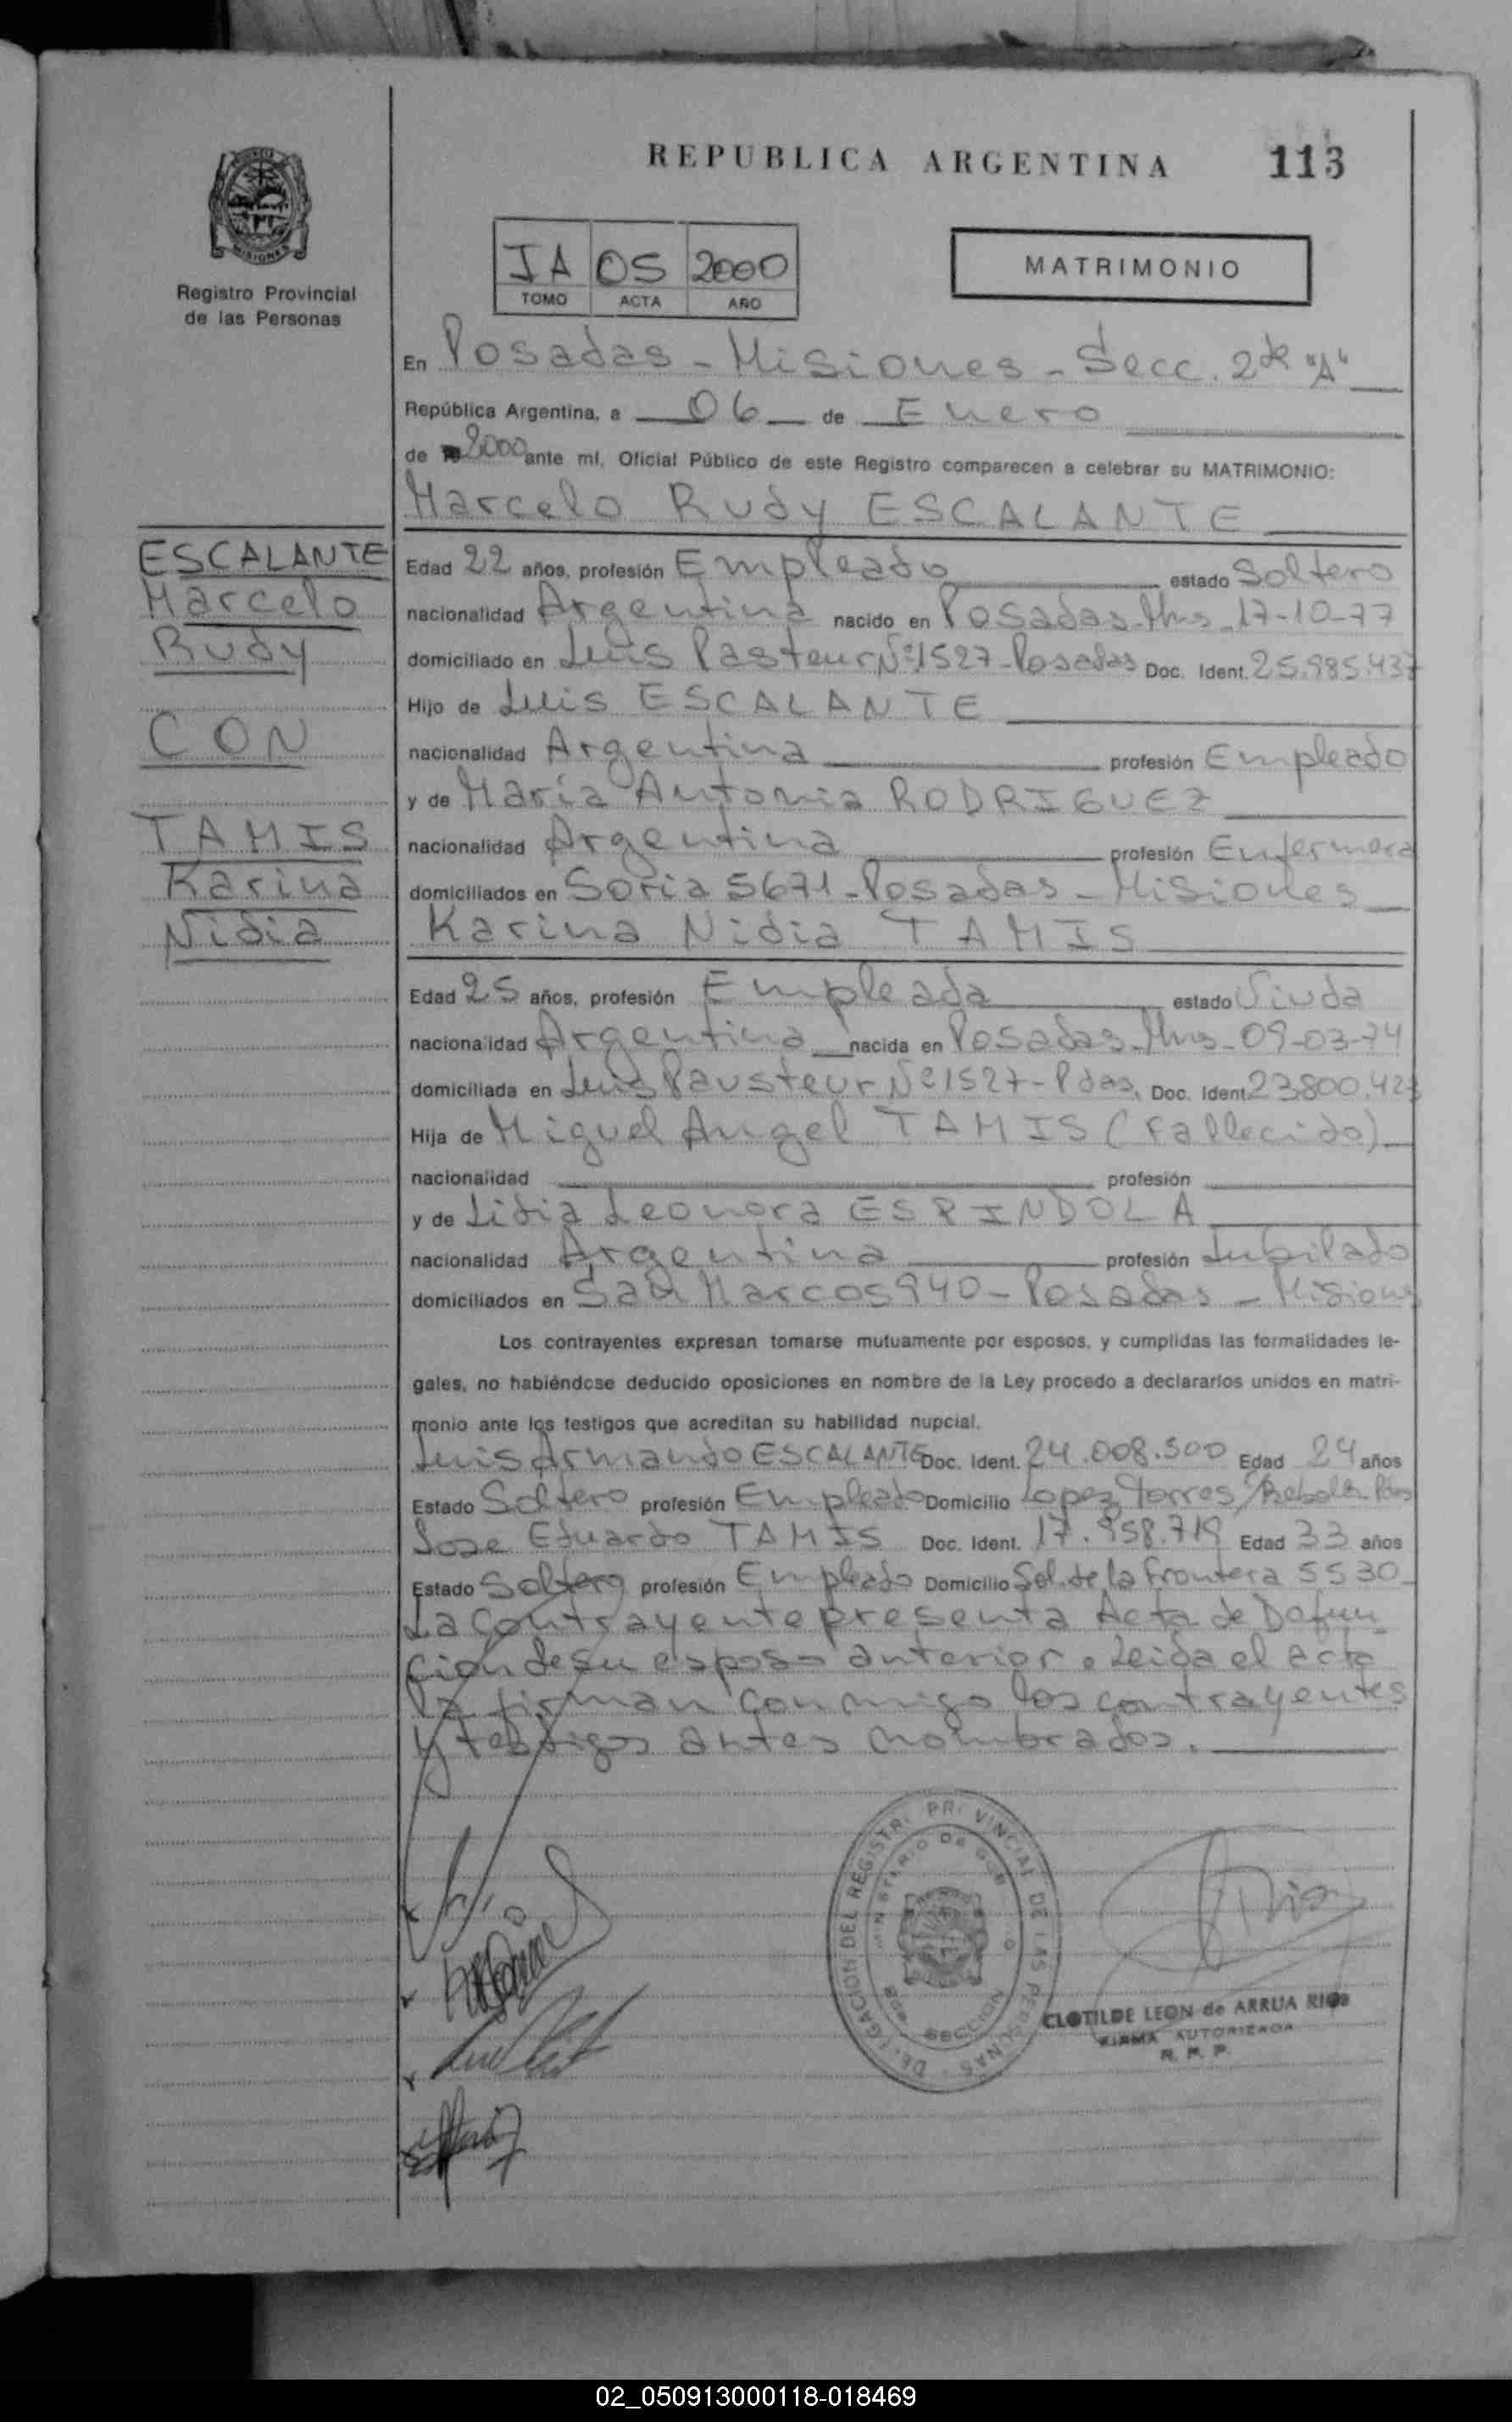 REPUBLICA ARGENTINA 113
MISIONES
Registro Provincial
de las Personas
IA 05 2000
TOMO ACTA AÑO
MATRIMONIO
En Posadas - Misiones - Secc. 2da "A"
República Argentina, a 06 de Enero
de 2000 ante mí, Oficial Público de este Registro comparecen a celebrar su MATRIMONIO:
Marcelo Rudy ESCALANTE
ESCALANTE
Marcelo
Rudy
CON
TAMIS
Karina
Nidia
Edad 22 años, profesión Empleado estado Soltero
nacionalidad Argentina nacido en Posadas-Mns-17-10-77
domiciliado en Luis Pasteur Nº1527-Posadas Doc. Ident. 25.985.437
Hijo de Luis ESCALANTE
nacionalidad Argentina profesión Empleado
y de María Antonia RODRIGUEZ
nacionalidad Argentina profesión Enfermera
domiciliados en Soria 5671-Posadas-Misiones
Karina Nidia TAMIS
Edad 25 años, profesión Empleada estado Viuda
nacionalidad Argentina nacida en Posadas-Mns-09-03-74
domiciliada en Luis Pausteur Nº1527-Pdas. Doc. Ident. 23.800.423
Hija de Miguel Angel TAMIS (Fallecido)
nacionalidad profesión
y de Lidia Leonora ESPINDOLA
nacionalidad Argentina profesión Jubilado
domiciliados en San Marcos 940-Posadas-Misiones
Los contrayentes expresan tomarse mutuamente por esposos, y cumplidas las formalidades le-
gales, no habiéndose deducido oposiciones en nombre de la Ley procedo a declararlos unidos en matri-
monio ante los testigos que acreditan su habilidad nupcial.
Luis Armando ESCALANTE Doc. Ident. 24.008.500 Edad 24 años
Estado Soltero profesión Empleado Domicilio Lopez Torres
Jose Eduardo TAMIS Doc. Ident. 17.958.719 Edad 33 años
Estado Soltero profesión Empleado Domicilio Sol de la Frontera 5530
La contrayente presenta Acta de Defun
cion de su esposo anterior. Leida el acta
la firman conmigo los contrayentes
y testigos antes nombrados.
DELEGACION DEL REGISTRO PROVINCIAL DE LAS PERSONAS
MINISTERIO DE GOB
SECCION
CLOTILDE LEON de ARRUA RIOS
FIRMA AUTORIZADA
R. P. P.
02_050913000118-018469